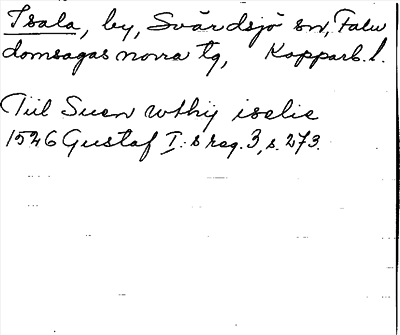 Isala, by, Svärdsjö sn, Falu
domsagas norra tg, Kopparb. l.
Tiil Suen wthij iselie
1526 Gustaf I:s reg. 3, s. 273.